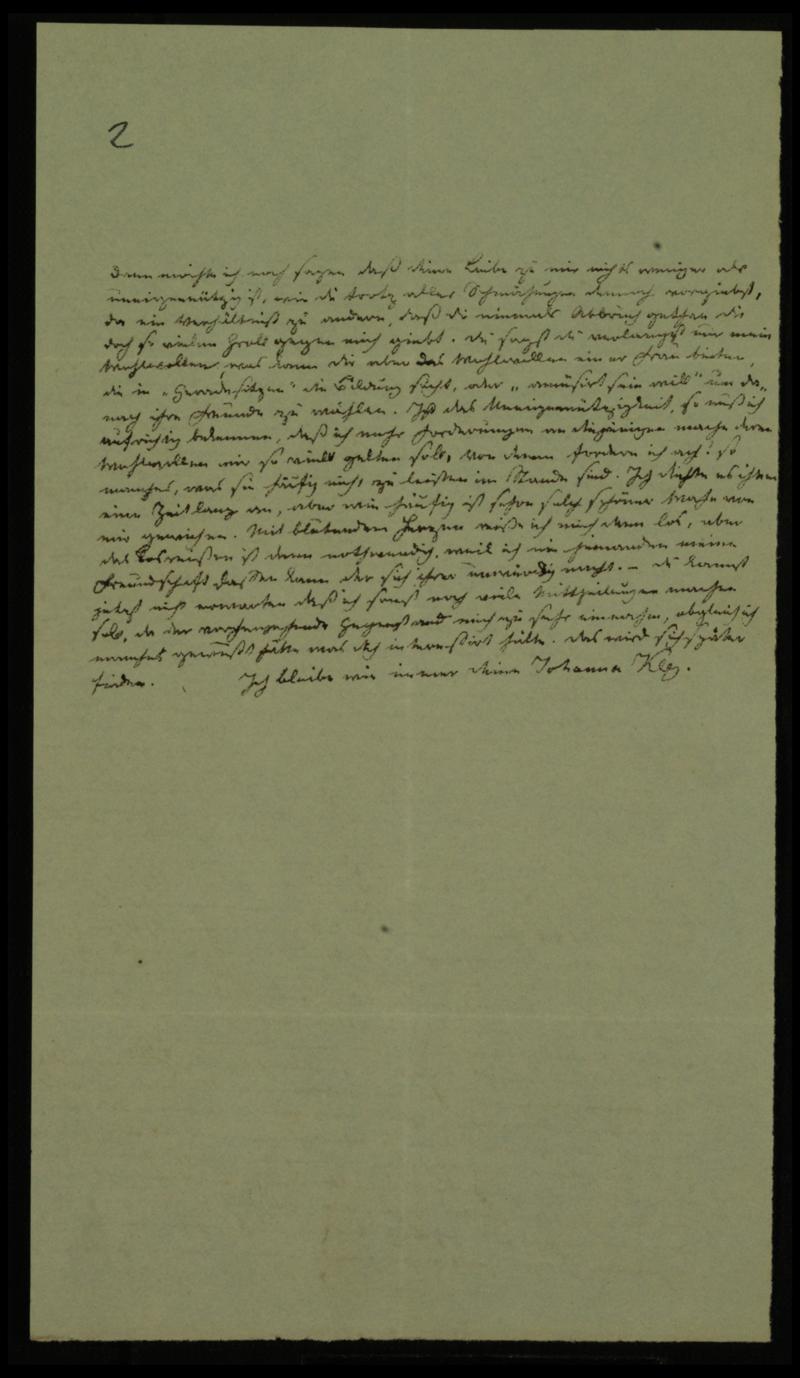 2
Dann möchte ich noch sagen daß deine Liebe zu mir nichts weniger als
uneigennützig ist, wie du trotz aller Schmähungen dennoch vorgiebst,
da ein Verhältniß zu andern, daß dir niemals Abbruch gethan dir
doch so vielen Groll gegen mich giebt. Du sagst du verlangst nur mein
Wohlwollen, was kann dir aber das Wohlwollen einer Frau bieten,
die in „Geradesitzen" die Bildung sucht, oder „amüsirt sein will" um da„
nach ihre Freunde zu wählen. Ist das Uneigennützigkeit, so muß ich
aufrichtig bekennen, daß ich mehr Forderungen an diejenigen mache deren
Wohlwollen mir so viel gelten soll, von denen fordere ich ach! so
manches, was sie häufig nicht zu leisten im Stande sind. Ich dichte es ihnen
eine Zeitlang an, aber wie häufig ist schon solch schöner Wahn von
mir gewichen. Mit blutendem Herzen reiße ich mich dann los, aber
das Losreißen ist dann nothwendig, weil ich nie jemanden meine
Freundschaft lassen kann der sich ihrer unwürdig macht. – Du kannst
jetzt nicht erwarten daß ich sonst noch viele Mittheilungen machen
soll, da der vorhergehende Gegenstand mich zu sehr einnahm, obgleich ich
manches gewußt hätte was dich interessirt hätte. Das wird sich später
finden. Ich bleibe wie immer deine Johanna